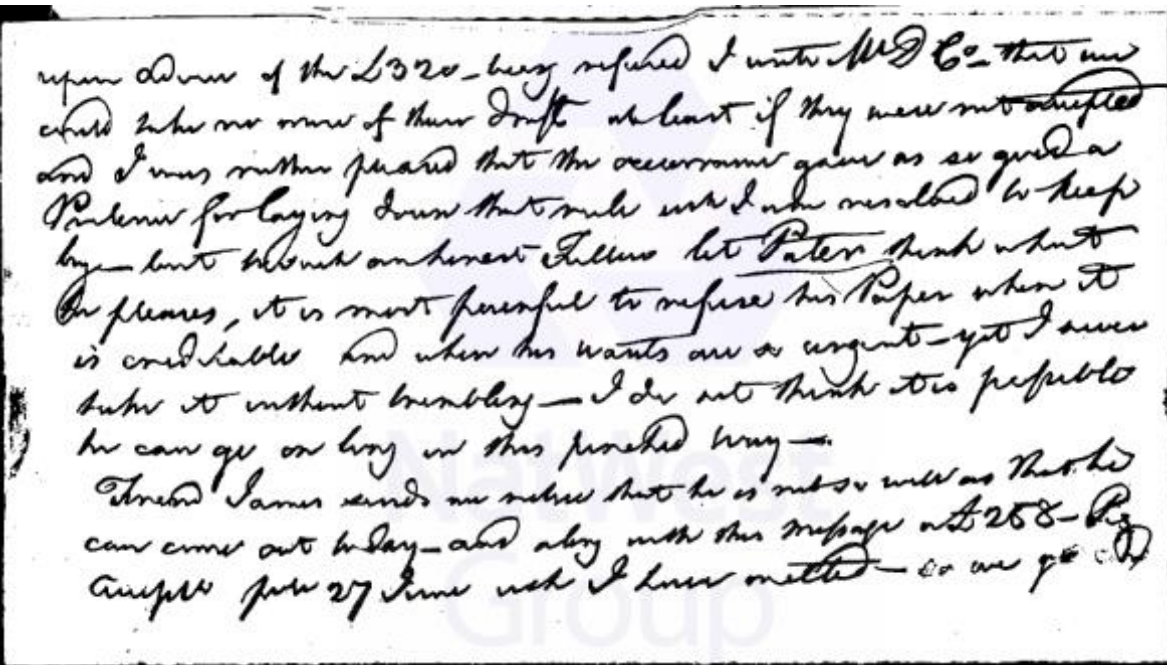 upon advice of the £320 – being refused I wrote McD & Co – that we
could take no more of their Draft at least if they were not accepted
and I was rather pleased that the occurrence gave us so good a
Pretence for laying down that rule wch I am resolved to keep
by – but wt such an honest Fellow let Pater think what
he pleases, it is most painful to refuse his Paper when it
is creditable and when his wants are so urgent – yet I never
take it without trembling – I do not think it is possible
he can go on long in this pinched way –
Friend James sends me notice that he is not so well as that he
can come out today – and along with this message a £258 – Pig
Accepte 27 June wch I have melted – so we go on
NatWest
Group